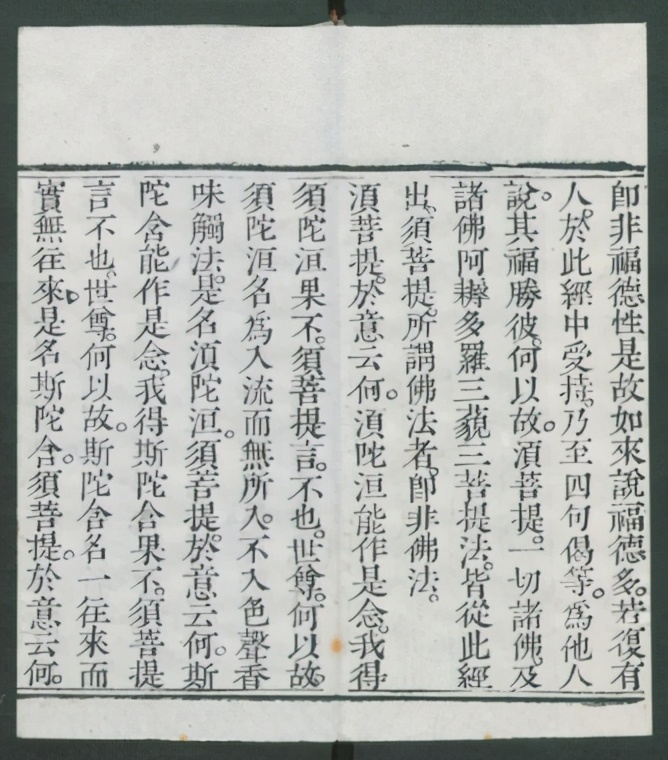 卽非福德性是故如來說福德多。若復有
人。於此經中受持。乃至四句偈等。爲他人
說。其福勝彼。何以故。須菩提。一切諸佛。及
諸佛阿耨多羅三藐三菩提法。皆從此經
出。須菩提。所謂佛法者。卽非佛法。
須菩提。於意云何。須陀洹能作是念。我得
須陀洹果不。須菩提言。不也。世尊。何以故。
須陀洹名爲入流而無所入。不入色聲香
味觸法。是名須陀洹。須菩提。於意云何。斯
陀含能作是念。我得斯陀含果不。須菩提
言不也。世尊。何以故。斯陀含名一往來而
實無往來。是名斯陀含。須菩提。於意云何。